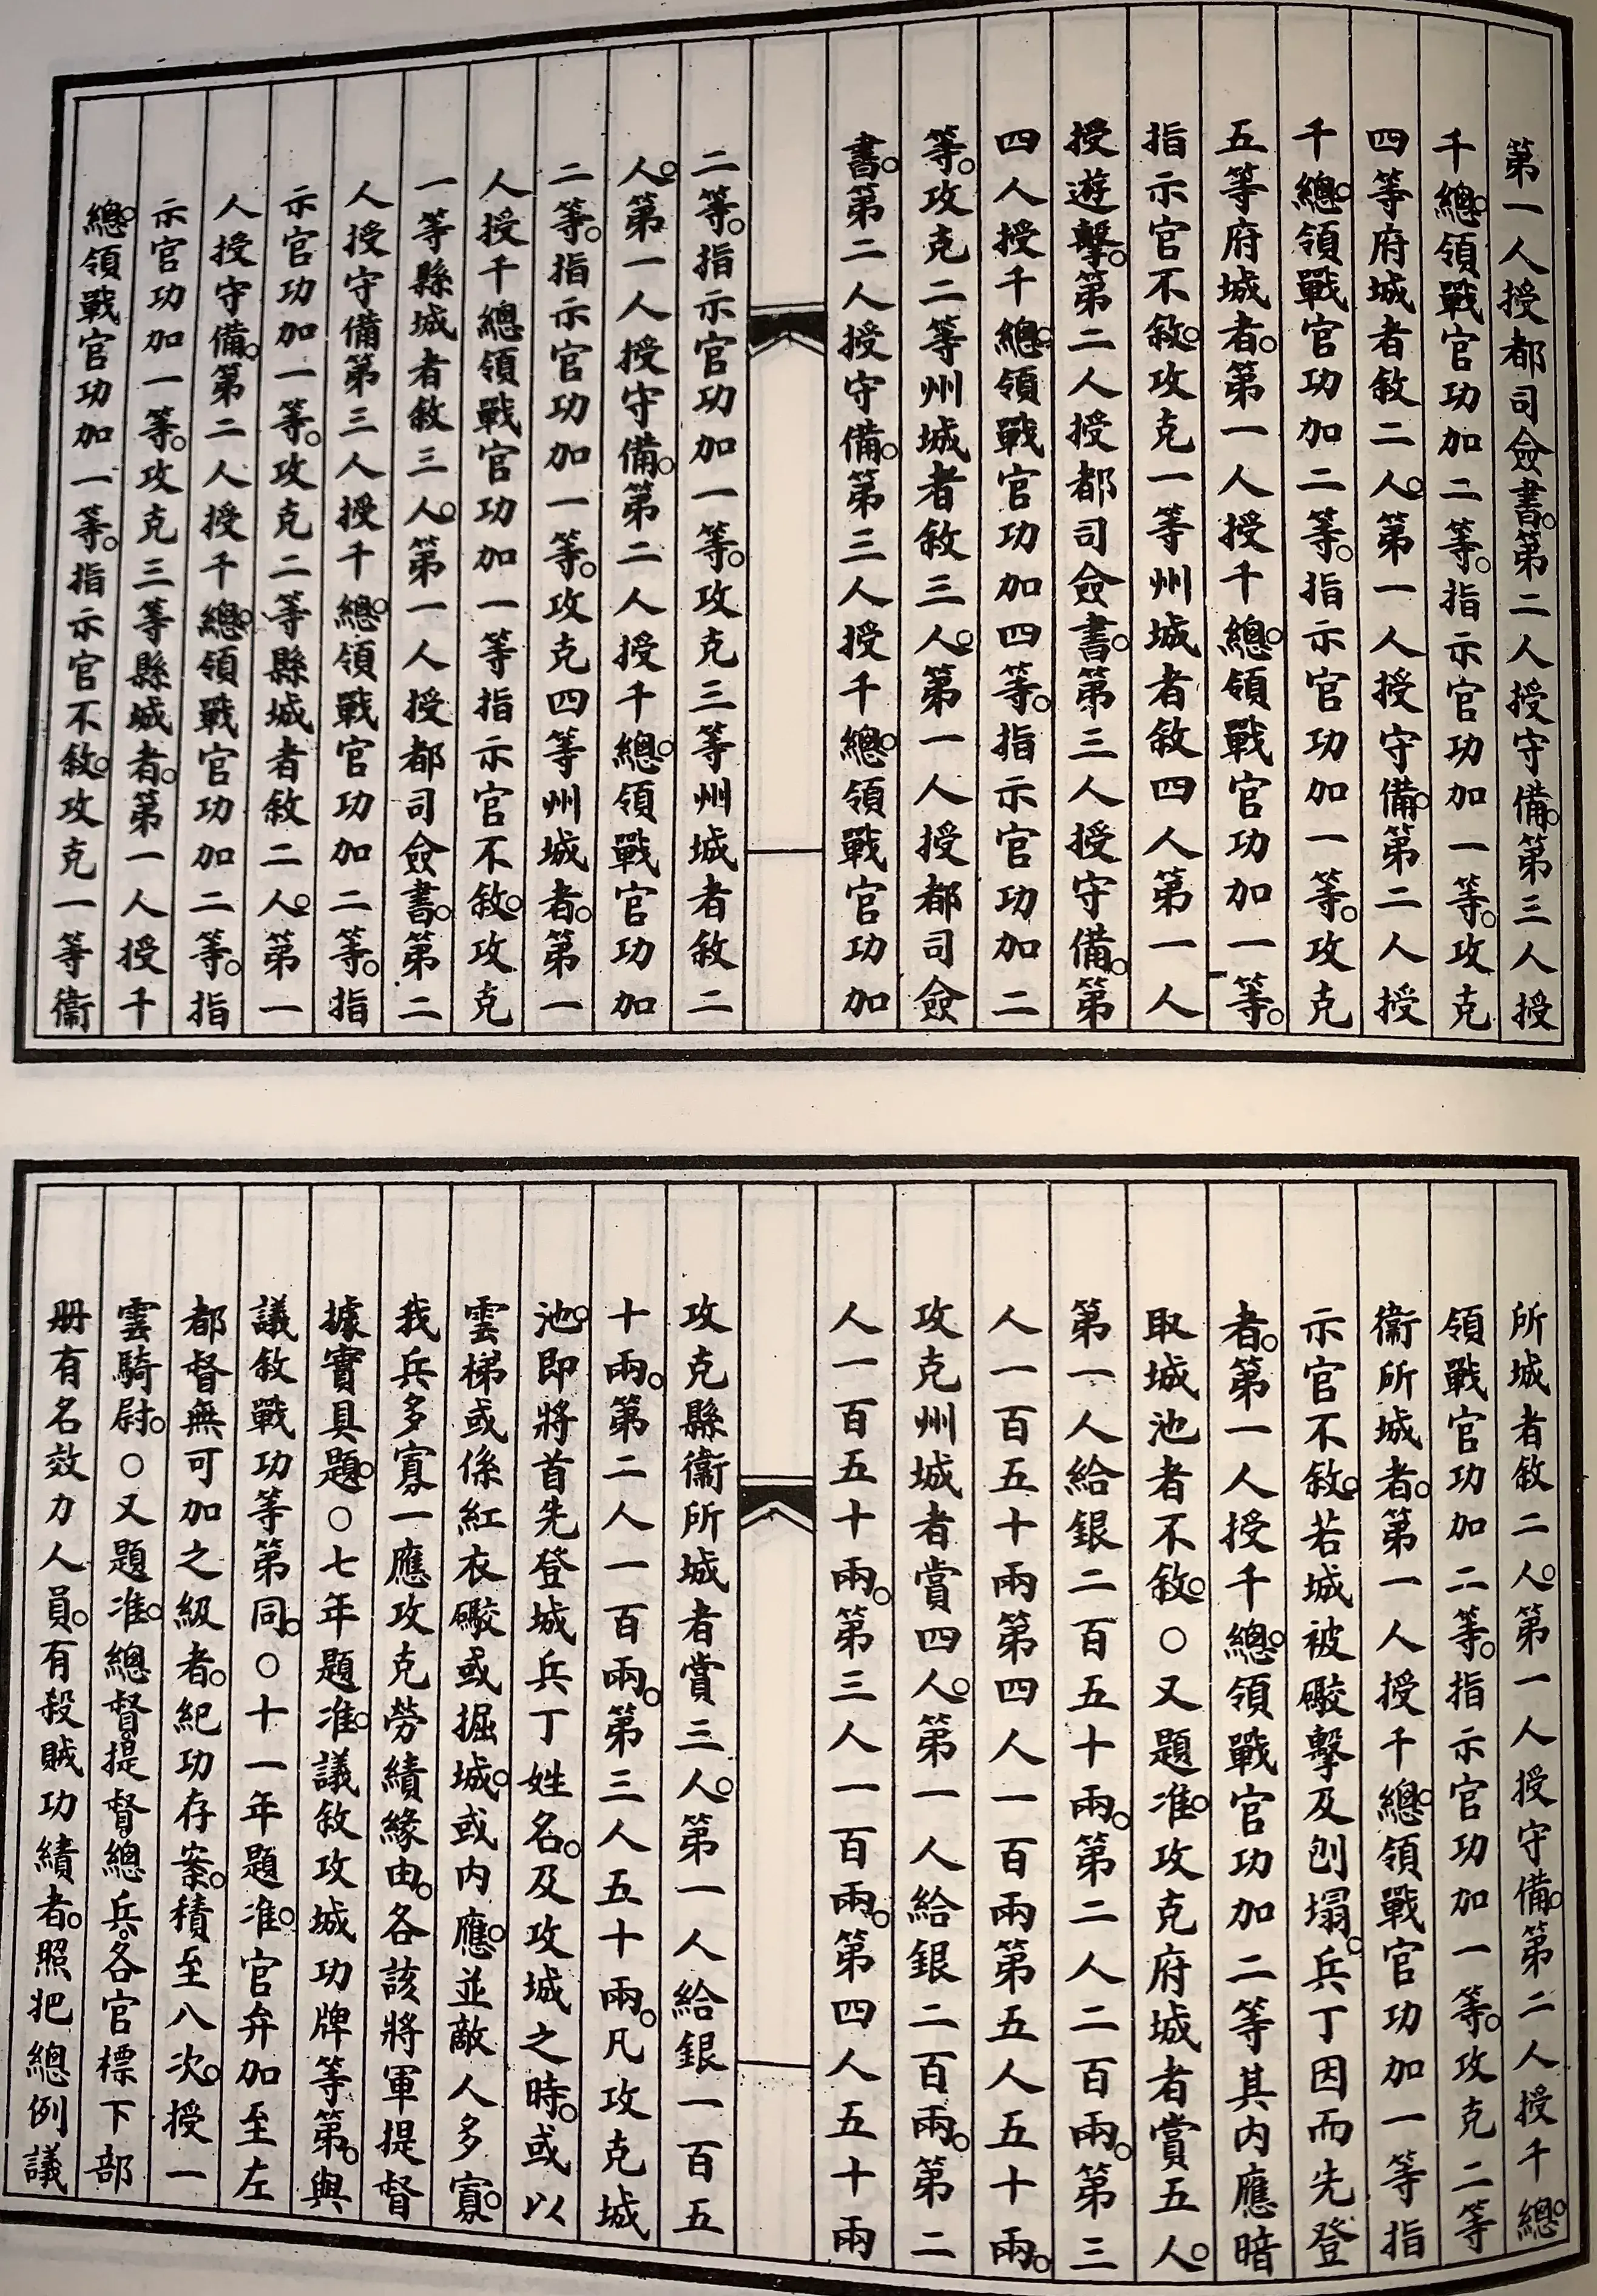 第一人授都司僉書。第二人授守備。第三人授
千總。領戰官功加二等。指示官功加一等。攻克
四等府城者敘二人。第一人授守備。第二人授
千總。領戰官功加二等。指示官功加一等。攻克
五等府城者。第一人授千總。領戰官功加一等。
指示官不敘。攻克一等州城者敘四人第一人
授遊擊。第二人授都司僉書。第三人授守備。第
四人授千總。領戰官功加四等。指示官功加二
等。攻克二等州城者敘三人。第一人授都司僉
書。第二人授守備。第三人授千總。領戰官功加
二等。指示官功加一等。攻克三等州城者敘二
人。第一人授守備。第二人授千總。領戰官功加
二等。指示官功加一等。攻克四等州城者。第一
人授千總領戰官功加一等指示官不敘。攻克
一等縣城者敘三人。第一人授都司僉書。第二
人授守備第三人授千總。領戰官功加二等。指
示官功加一等。攻克二等縣城者敘二人。第一
人授守備。第二人授千總。領戰官功加二等。指
示官功加一等。攻克三等縣城者。第一人授千
總。領戰官功加一等。指示官不敘。攻克一等衞
所城者敘二人。第一人授守備。第二人授千總。
領戰官功加二等。指示官功加一等。攻克二等
衞所城者。第一人授千總。領戰官功加一等指
示官不敘。若城被礮擊及刨塌。兵丁因而先登
者。第一人授千總。領戰官功加二等其內應暗
取城池者不敘。○又題准。攻克府城者賞五人。
第一人給銀二百五十兩。第二人二百兩。第三
人一百五十兩第四人一百兩第五人五十兩。
攻克州城者賞四人。第一人給銀二百兩。第二
人一百五十兩。第三人一百兩。第四人五十兩
攻克縣衞所城者賞三人。第一人給銀一百五
十兩。第二人一百兩。第三人五十兩。凡攻克城
池。即將首先登城兵丁姓名。及攻城之時。或以
雲梯或係紅衣礮或掘城。或內應。並敵人多寡。
我兵多寡一應攻克勞績緣由。各該將軍提督
據實具題。○七年題准。議敘攻城功牌等第。與
議敘戰功等第同。○十一年題准。官弁加至左
都督無可加之級者。紀功存案。積至八次。授一
雲騎尉。○又題准。總督提督總兵。各官標下部
册有名效力人員。有殺賊功績者。照把總例議